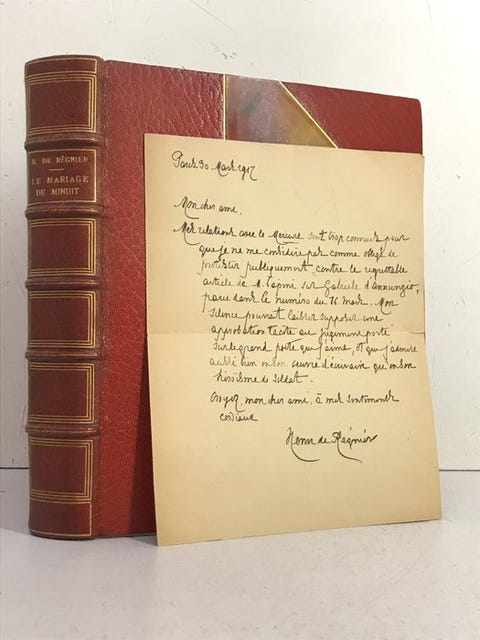 H. DE RÉGNIER
LE MARIAGE
DE MINUIT
Paris 30 Mars 1917
Mon cher ami,
Mes relations avec le Mercure sont trop connues pour
que je ne me considère pas comme obligé de
protester publiquement contre le regrettable
article de M. Papini sur Gabriele d'Annunzio,
paru dans le numéro du 16 mars. Mon
silence pourrait laisser supposer une
approbation tacite au jugement porté
sur le grand poète que j'aime, et que j'admire
aussi bien en son œuvre d'écrivain qu'en son
héroïsme de soldat.
Croyez, mon cher ami, à mes sentiments
cordiaux
Henri de Régnier